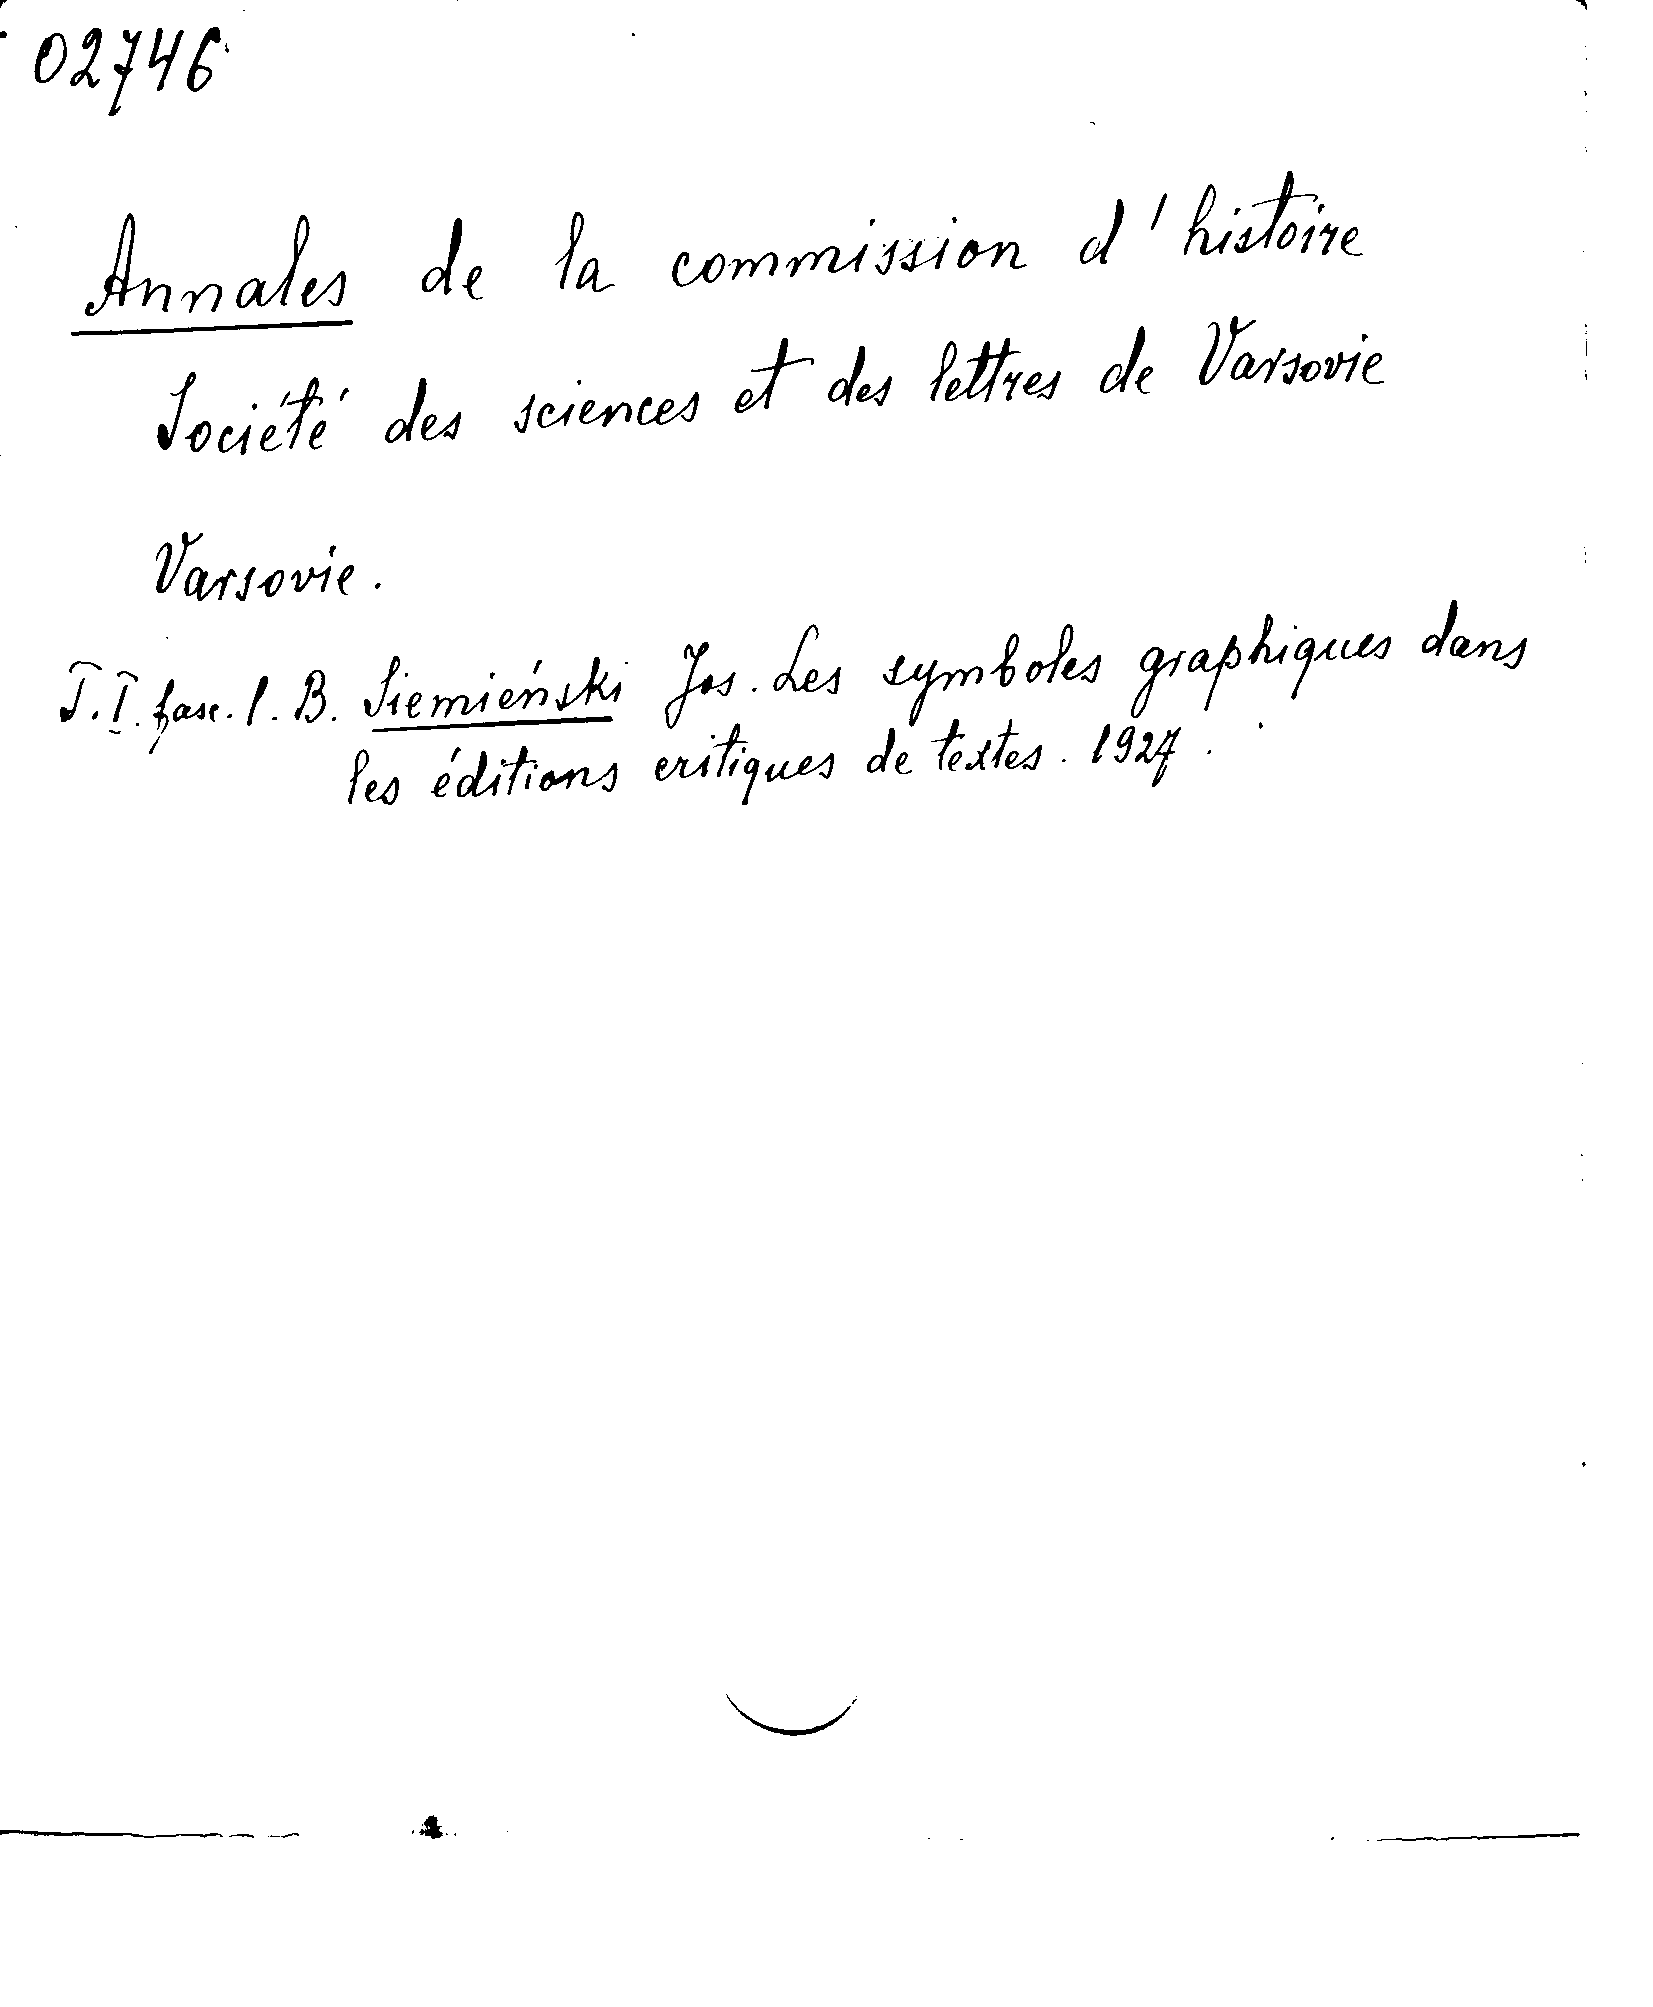 02746
Annales de la commission d'histoire
Société des sciences et des lettres de Varsovie
Varsovie.
T. I. fasc. 1. B. Siemieński Jos. Les symboles graphiques dans
les éditions critiques de textes. 1927.